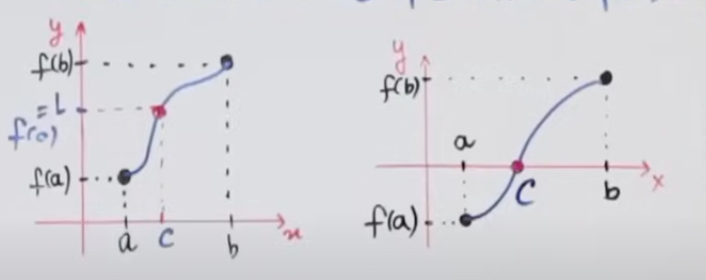 y
f(b)
=L
f(c)
f(a)
a
c
b
x
y
f(b)
a
C
b
x
f(a)